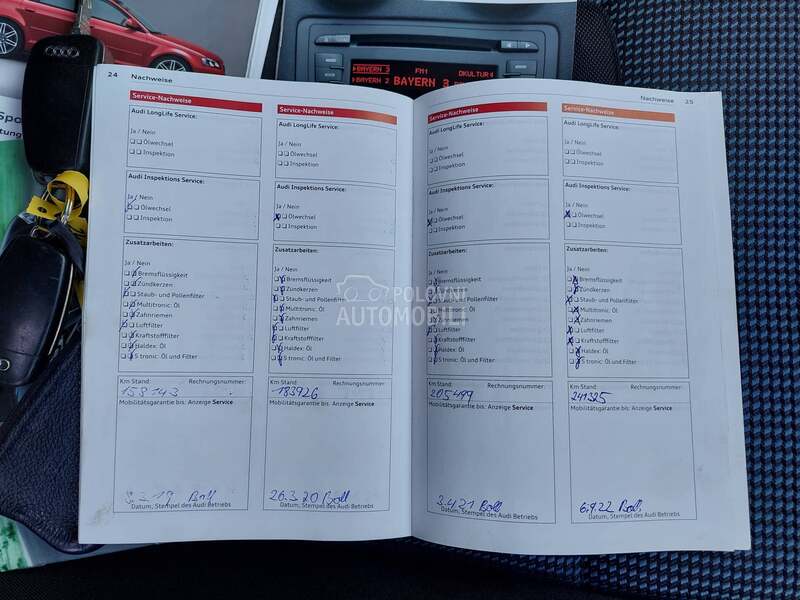 BAYERN 3
FM1
OKULTUR4
BAYERN 2
BAYERN 3
Spo
tung
24 Nachweise
Service-Nachweise
Audi LongLife Service:
Ja / Nein
Ölwechsel
Inspektion
Audi Inspektions Service:
Ja / Nein
Ölwechsel
Inspektion
Zusatzarbeiten:
Ja / Nein
Bremsflüssigkeit
Zündkerzen
Staub- und Pollenfilter
Multitronic: Öl
Zahnriemen
Luftfilter
Kraftstofffilter
Haldex: Öl
S tronic: Öl und Filter
Km Stand: Rechnungsnummer:
158143
Mobilitätsgarantie bis: Anzeige Service
Boll
Datum, Stempel des Audi Betriebs
Service-Nachweise
Audi LongLife Service:
Ja / Nein
Ölwechsel
Inspektion
Audi Inspektions Service:
Ja / Nein
Ölwechsel
Inspektion
Zusatzarbeiten:
Ja / Nein
Bremsflüssigkeit
Zündkerzen
Staub- und Pollenfilter
Multitronic: Öl
Zahnriemen
Luftfilter
Kraftstofffilter
Haldex: Öl
S tronic: Öl und Filter
Km Stand: Rechnungsnummer:
183926
Mobilitätsgarantie bis: Anzeige Service
26.3.20 Boll
Datum, Stempel des Audi Betriebs
Nachweise 25
Service-Nachweise
Audi LongLife Service:
Ja / Nein
Ölwechsel
Inspektion
Audi Inspektions Service:
Ja / Nein
Ölwechsel
Inspektion
Zusatzarbeiten:
Ja / Nein
Bremsflüssigkeit
Zündkerzen
Staub- und Pollenfilter
Multitronic: Öl
Zahnriemen
Luftfilter
Kraftstofffilter
Haldex: Öl
S tronic: Öl und Filter
Km Stand: Rechnungsnummer:
205499
Mobilitätsgarantie bis: Anzeige Service
3.4.21 Boll
Datum, Stempel des Audi Betriebs
Service-Nachweise
Audi LongLife Service:
Ja / Nein
Ölwechsel
Inspektion
Audi Inspektions Service:
Ja / Nein
Ölwechsel
Inspektion
Zusatzarbeiten:
Ja / Nein
Bremsflüssigkeit
Zündkerzen
Staub- und Pollenfilter
Multitronic: Öl
Zahnriemen
Luftfilter
Kraftstofffilter
Haldex: Öl
S tronic: Öl und Filter
Km Stand: Rechnungsnummer:
241325
Mobilitätsgarantie bis: Anzeige Service
6.4.22 Boll
Datum, Stempel des Audi Betriebs
POLOVNI
AUTOMOBILI